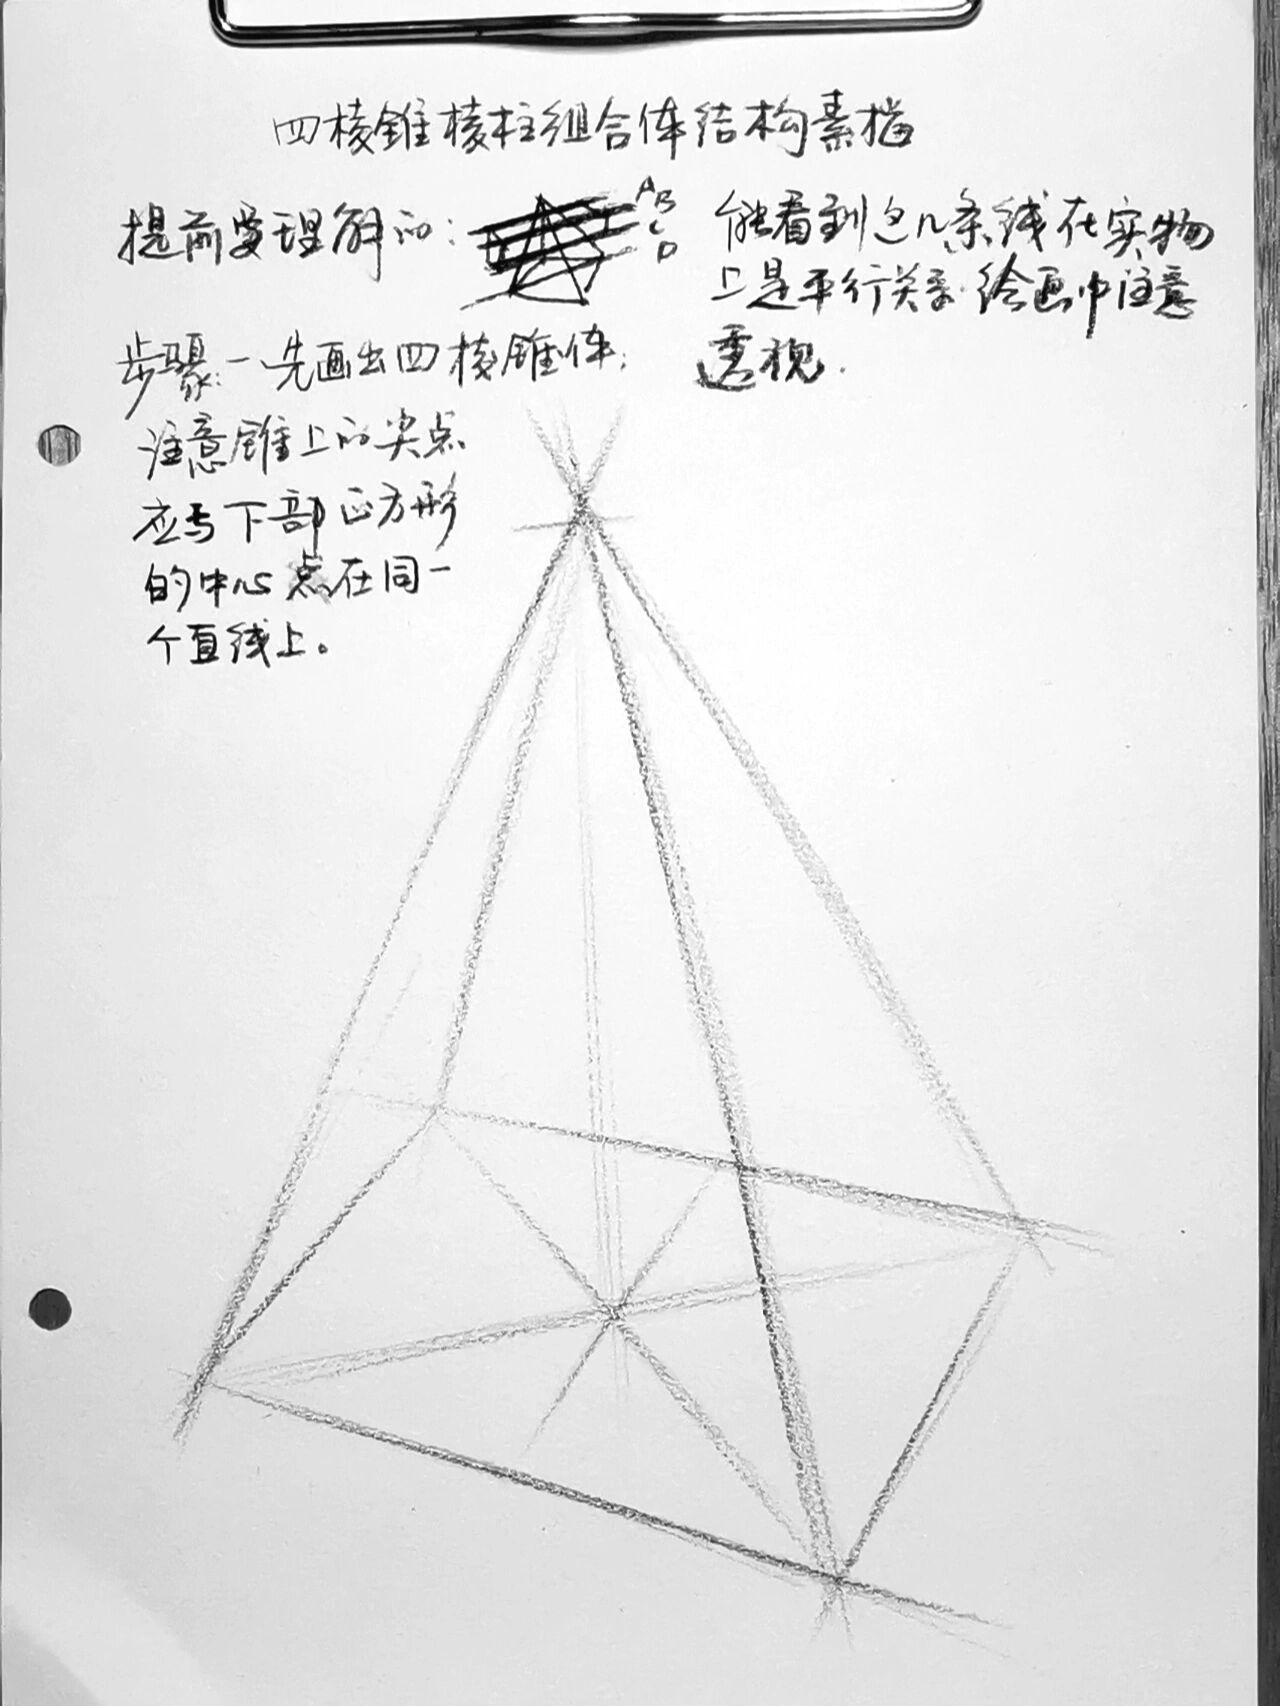 四棱锥棱柱组合体结构素描
提前要理解的：
A
B
C
D
能看到这几条线在实物
上是平行关系.绘画中注意
透视.
步骤：一先画出四棱锥体；
注意锥上的尖点
应与下部正方形
的中心点在同一
个直线上。